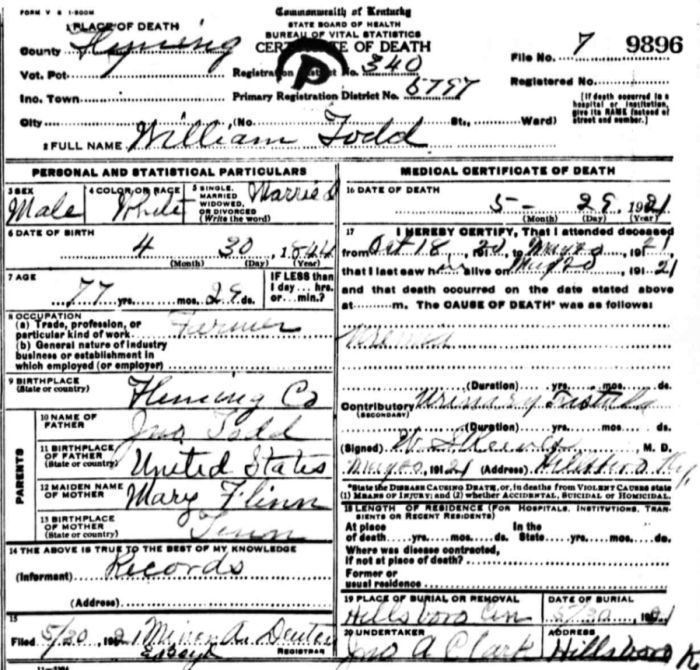 FORM V S 1-500M
Commonwealth of Kentucky
STATE BOARD OF HEALTH
BUREAU OF VITAL STATISTICS
CERTIFICATE OF DEATH
1 PLACE OF DEATH
County
File No. 7 9896
Vot. Pct.
Registration District No. 340
Registered No.
Inc. Town
Primary Registration District No. 5797
[If death occurred in a hospital or institution, give its NAME instead of street and number.]
City (No. St., Ward)
2 FULL NAME William Todd
PERSONAL AND STATISTICAL PARTICULARS
3 SEX
Male
4 COLOR OR RACE
White
5 SINGLE, MARRIED WIDOWED, OR DIVORCED (Write the word)
Married
6 DATE OF BIRTH
4 30 1844
(Month) (Day) (Year)
7 AGE
77 yrs. mos. 29 ds.
IF LESS than 1 day... hrs. or... min.?
8 OCCUPATION
(a) Trade, profession, or particular kind of work Farmer
(b) General nature of industry
business or establishment in
which employed (or employer)
9 BIRTHPLACE
(State or country) Fleming Co
PARENTS
10 NAME OF FATHER Jno Todd
11 BIRTHPLACE OF FATHER
(State or country) United States
12 MAIDEN NAME OF MOTHER Mary Flinn
13 BIRTHPLACE OF MOTHER
(State or country) Tenn
14 THE ABOVE IS TRUE TO THE BEST OF MY KNOWLEDGE
(Informant) Records
(Address)
15
Filed 5/30 1921
REGISTRAR
MEDICAL CERTIFICATE OF DEATH
16 DATE OF DEATH
5 - 29 1921
(Month) (Day) (Year)
17 I HEREBY CERTIFY, That I attended deceased
from Oct 18 1920, to 1921
that I last saw him alive on 1921
and that death occurred on the date stated above
at m. The CAUSE OF DEATH* was as follows:
Uremia
(Duration) yrs. mos. ds.
Contributory Urinary
(SECONDARY)
(Duration) yrs. mos. ds.
(Signed) M. D.
1921 (Address) Hillsboro Ky
*State the DISEASE CAUSING DEATH, or, in deaths from VIOLENT CAUSES state
(1) MEANS OF INJURY; and (2) whether ACCIDENTAL, SUICIDAL or HOMICIDAL.
18 LENGTH OF RESIDENCE (FOR HOSPITALS, INSTITUTIONS, TRANSIENTS OR RECENT RESIDENTS)
At place of death yrs. mos. ds. In the State yrs. mos. ds.
Where was disease contracted,
if not at place of death?
Former or
usual residence
19 PLACE OF BURIAL OR REMOVAL
Hillsboro Cem
DATE OF BURIAL
5/30 1921
20 UNDERTAKER
Jno A Clark
ADDRESS
Hillsboro K